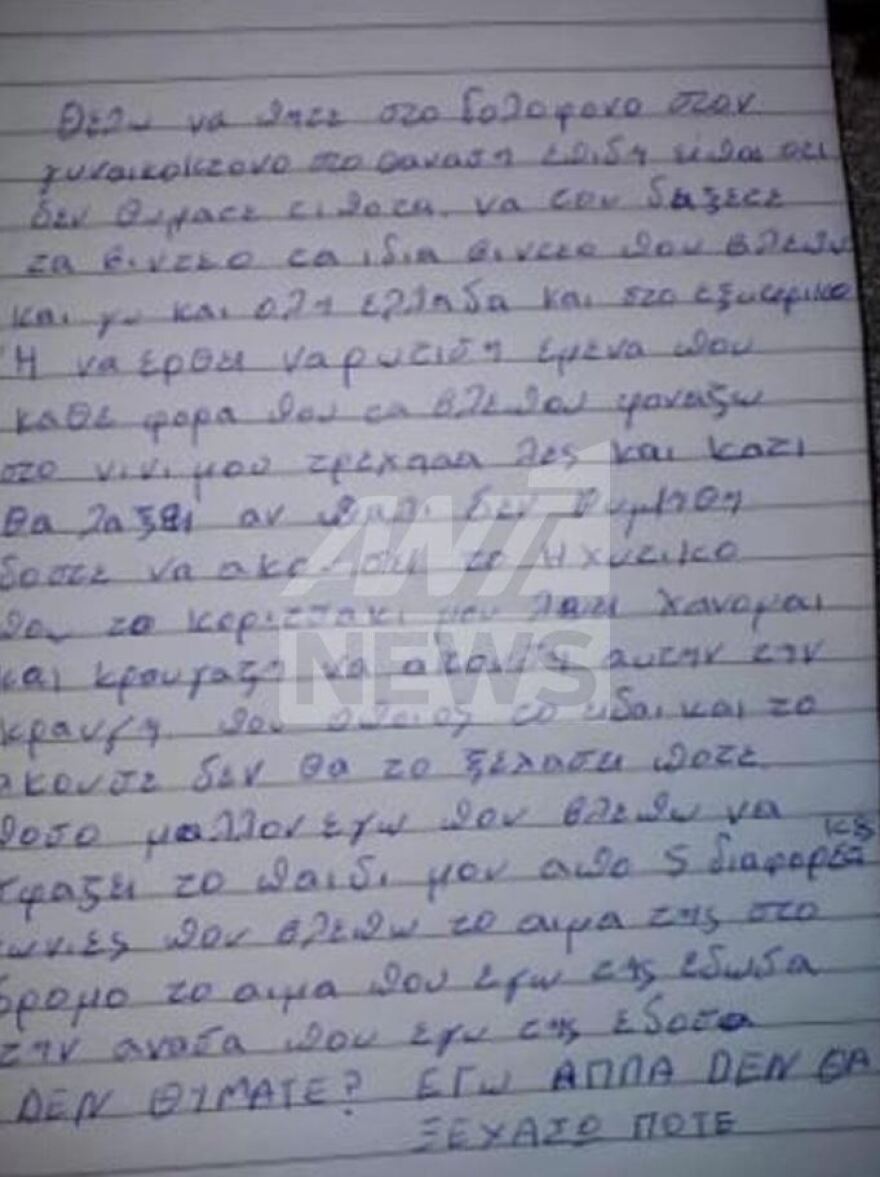 θελω να πητε στο δολοφονο στον
γυναικοκτονο στο θαναση επιδη ειπαι οτι
δεν θυματε τιποτα. να του δειξετε
τα βιντεο τα ιδια βιντεο που βλεπω
και γω και ολη ελλαδα και στο εξωτερικο
Η να ερθει να ρωτιση εμενα που
καθε φορα που τα βλεπου φοναζω
στο νινι μου τρεχααα λες και κατι
θα λαξει αν παλι δεν θυμηθη
δοστε να ακουσει το Ηχητικο
που το κοριτσακι μου λεει χανομαι
και κραυγαζη να ακουση αυτην την
κραυγη που οποιος το ειδαι και το
ακουσε δεν θα το ξεχασει ποτε
ποσο μαλλον εγω που βλεπω να
σφαζει το παιδι μου απο 5 διαφορες
κες
ωνιες που βλεπω το αιμα της στο
δρομο το αιμα που εγω της εδωσα
την ανασα που εγω της εδοσα
ΔΕΝ ΘΥΜΑΤΕ? ΕΓΩ ΑΠΠΑ ΔΕΝ ΘΑ
ΞΕΧΑΣΩ ΠΟΤΕ
ANT1
NEWS